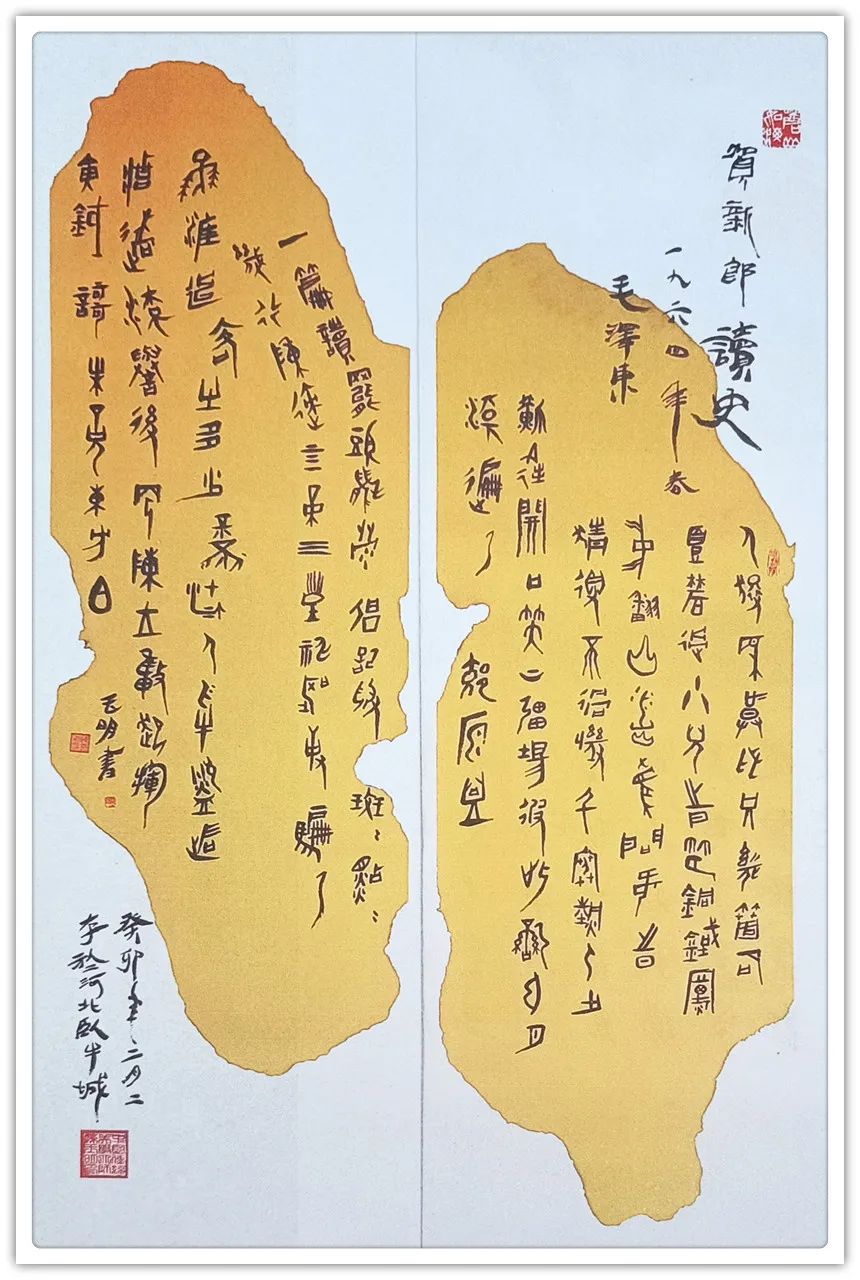 賀新郎 讀史
一九六四年春
毛澤東
人猿相揖別只幾箇石
頭磨過小兒時節銅鐵爐
中翻火焰為問何時
猜得不過幾千寒熱人世
難逢開口笑上疆場彼此彎弓月
流遍了郊原血
一篇讀罷頭飛雪但記得斑〻點〻
幾行陳迹五帝三皇神聖事騙了
無涯過客有多少風流人物盜跖
莊蹻流譽後更陳王奮起揮
黃鉞歌未竟東方白
玉明書
癸卯年二月二
於河北臥牛城